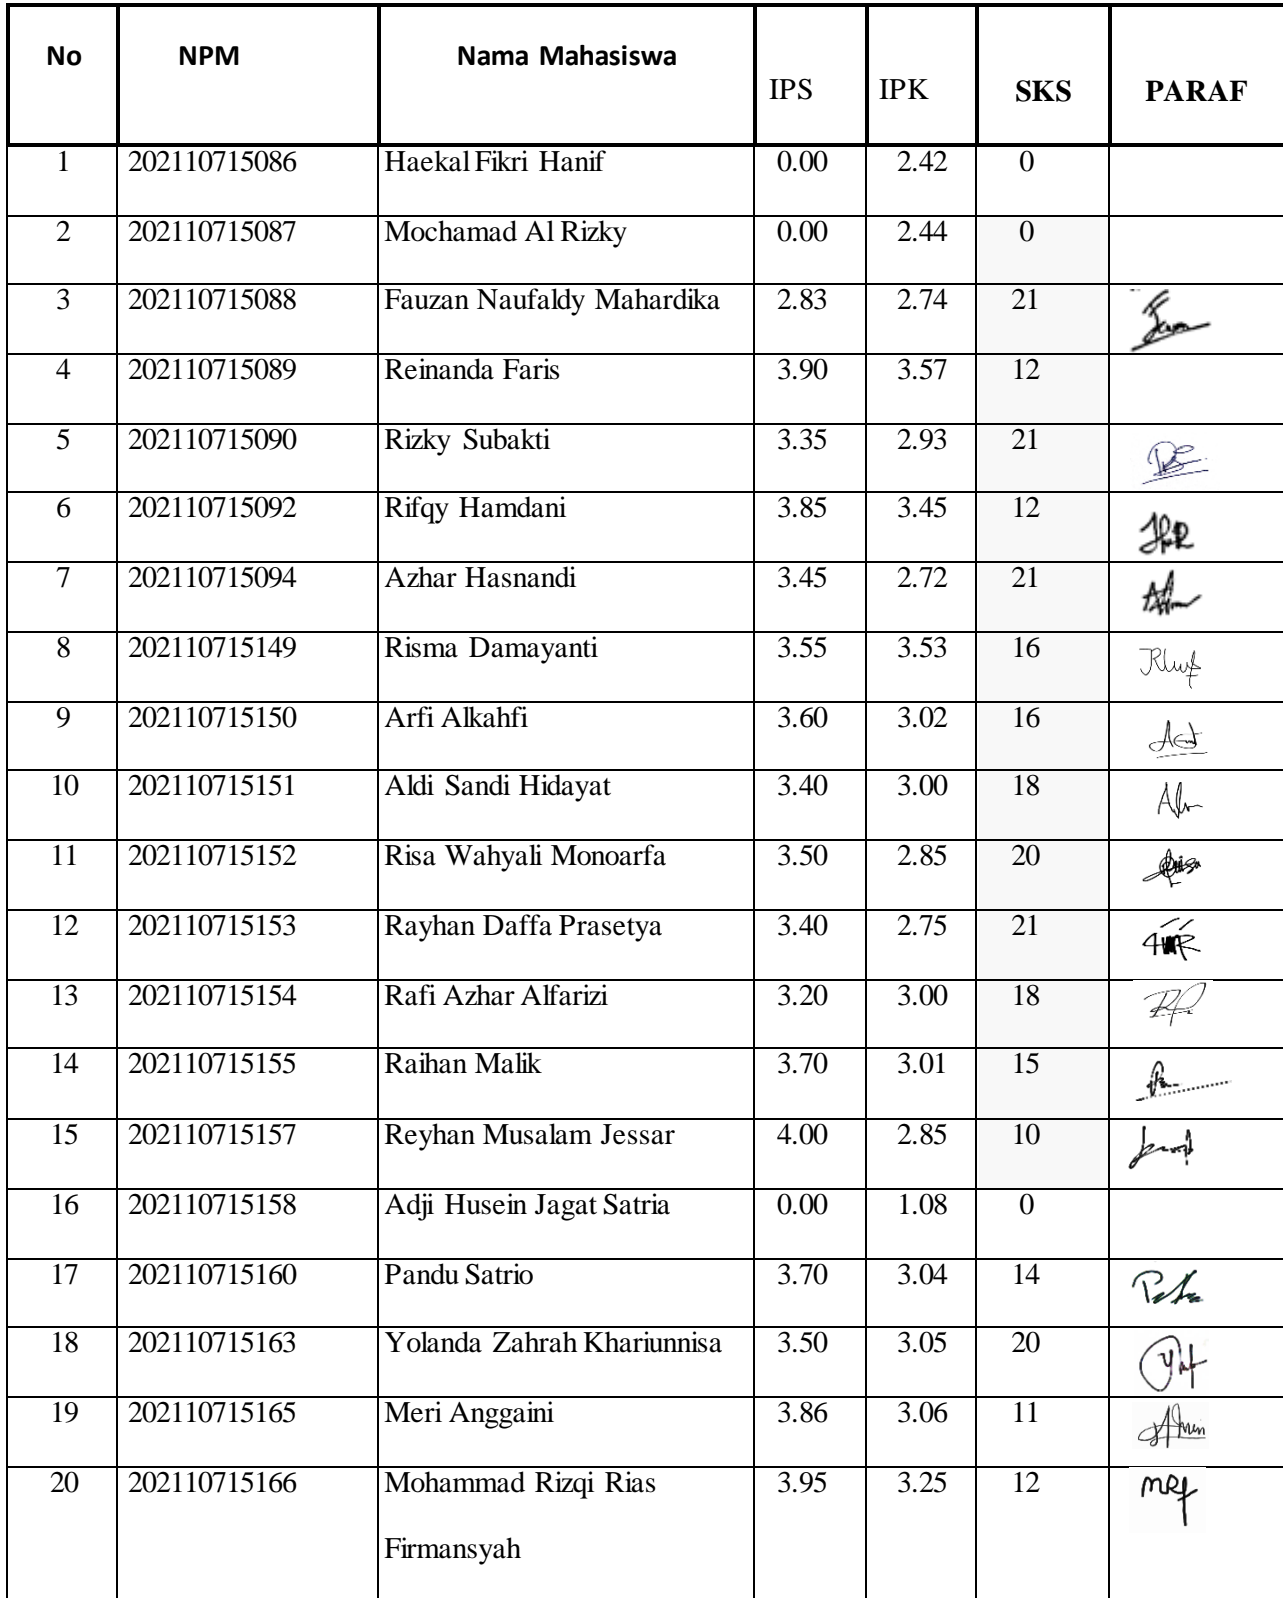 No NPM Nama Mahasiswa IPS IPK SKS PARAF
1 202110715086 Haekal Fikri Hanif 0.00 2.42 0
2 202110715087 Mochamad Al Rizky 0.00 2.44 0
3 202110715088 Fauzan Naufaldy Mahardika 2.83 2.74 21
4 202110715089 Reinanda Faris 3.90 3.57 12
5 202110715090 Rizky Subakti 3.35 2.93 21
6 202110715092 Rifqy Hamdani 3.85 3.45 12
7 202110715094 Azhar Hasnandi 3.45 2.72 21
8 202110715149 Risma Damayanti 3.55 3.53 16
9 202110715150 Arfi Alkahfi 3.60 3.02 16
10 202110715151 Aldi Sandi Hidayat 3.40 3.00 18
11 202110715152 Risa Wahyali Monoarfa 3.50 2.85 20
12 202110715153 Rayhan Daffa Prasetya 3.40 2.75 21
13 202110715154 Rafi Azhar Alfarizi 3.20 3.00 18
14 202110715155 Raihan Malik 3.70 3.01 15
15 202110715157 Reyhan Musalam Jessar 4.00 2.85 10
16 202110715158 Adji Husein Jagat Satria 0.00 1.08 0
17 202110715160 Pandu Satrio 3.70 3.04 14
18 202110715163 Yolanda Zahrah Khariunnisa 3.50 3.05 20
19 202110715165 Meri Anggaini 3.86 3.06 11
20 202110715166 Mohammad Rizqi Rias 3.95 3.25 12
Firmansyah